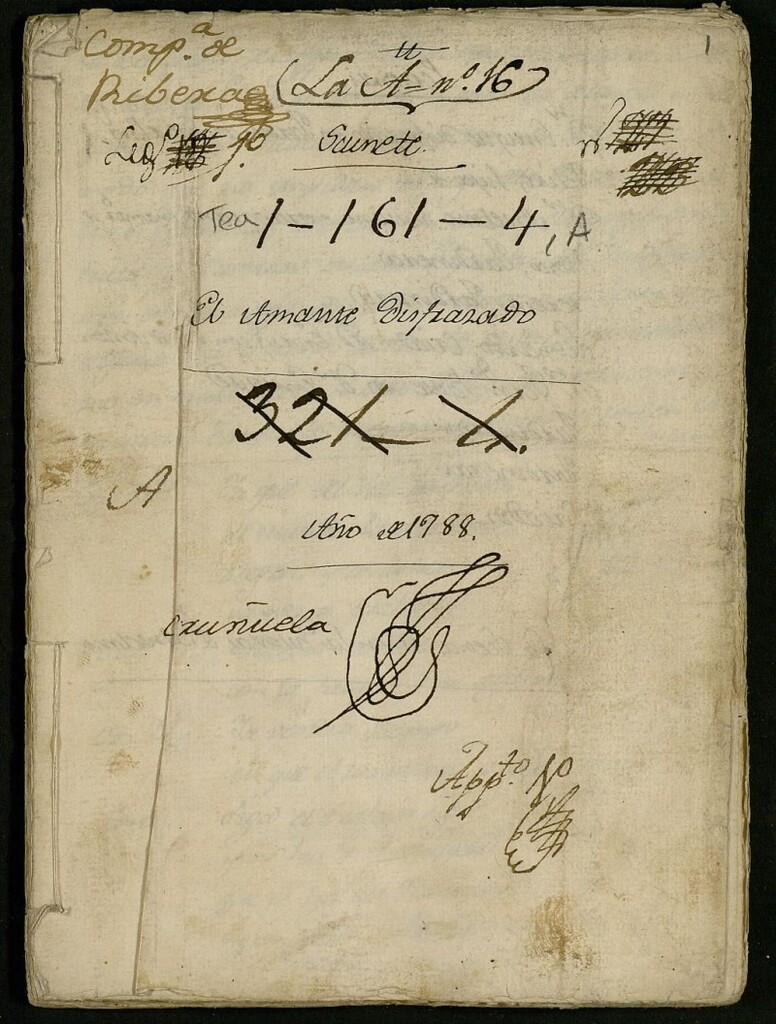 1
Comp.ª de
Ribera
La A tt = nº. 16
Leg.º 10.
Saynete.
Tea 1-161-4, A
El Amante Disfrazado
321-4.
A
Año de 1788.
Cruñuela
App.to 10